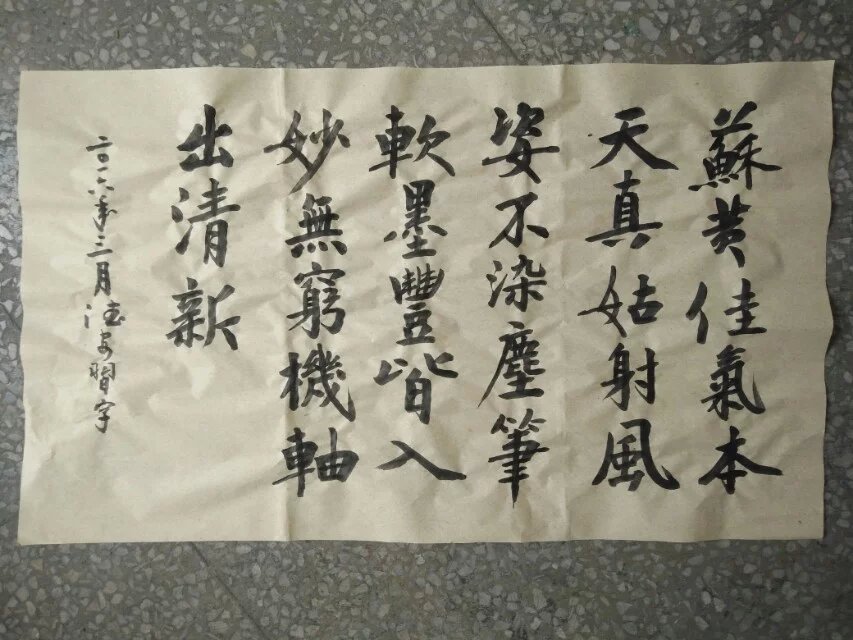 蘇黄佳氣本
天真姑射風
姿不染塵筆
軟墨豐皆入
妙無窮機軸
出清新
二〇一六年三月習字